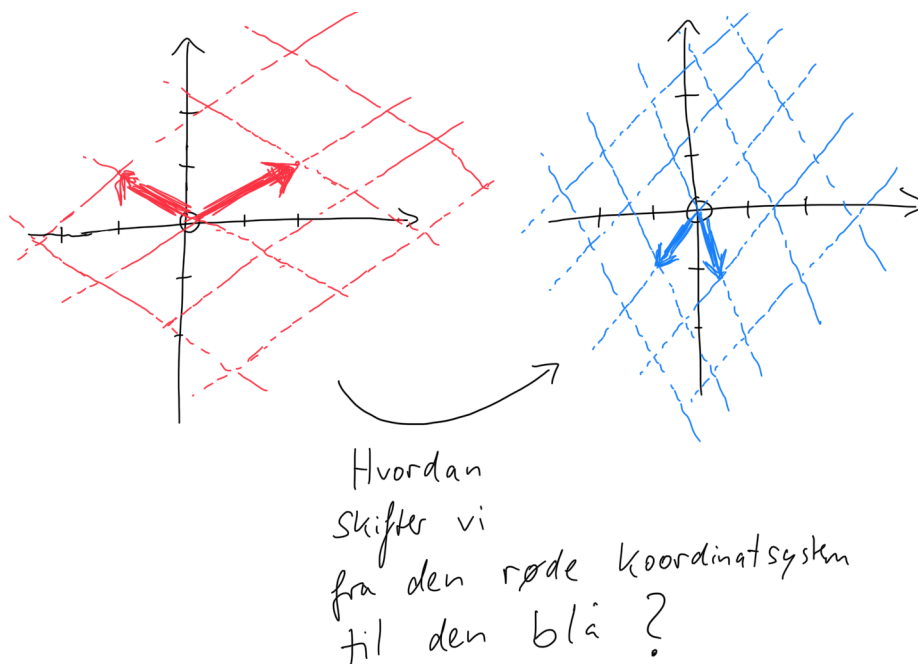 Hvordan
skifter vi
fra den røde koordinatsystem
til den blå ?